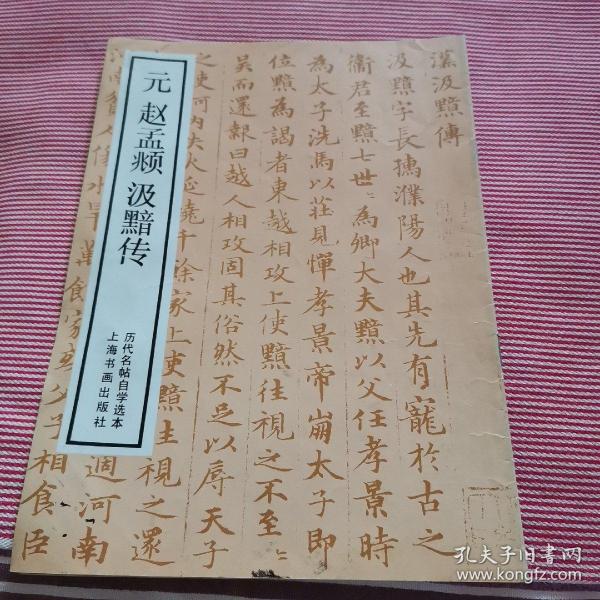 元 赵孟𫖯 汲黯传
历代名帖自学选本
上海书画出版社
漢汲黯傳
汲黯字長孺濮陽人也其先有寵於古之
衞君至黯七世〻為卿大夫黯以父任孝景時
為太子洗馬以莊見憚孝景帝崩太子即
位黯為謁者東越相攻上使黯往視之不至〻
吳而還報曰越人相攻固其俗然不足以辱天子
之使河内失火延燒千餘家上使黯往視之還
過河南
河南貧人傷水旱萬餘家或父子相食臣
孔夫子旧书网
www.kongfz.com